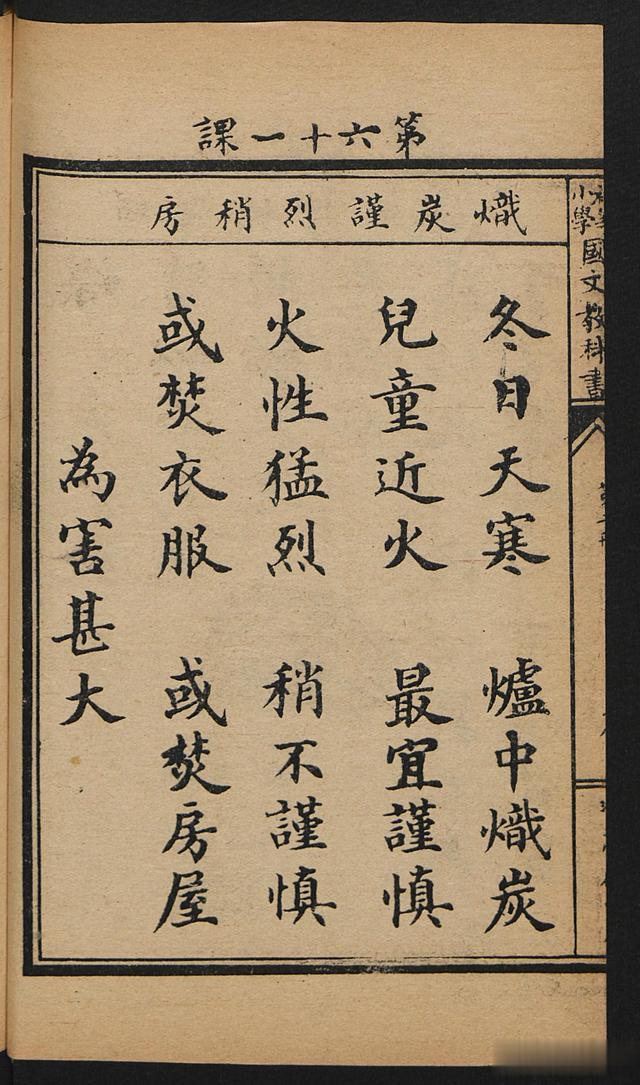 第六十一課
熾炭謹烈稍房
冬日天寒 爐中熾炭
兒童近火 最宜謹慎
火性猛烈 稍不謹慎
或焚衣服 或焚房屋
為害甚大
小學
國文教科書